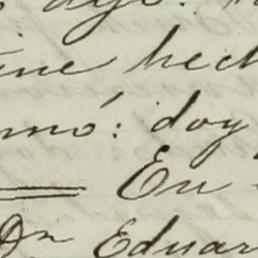 dije.
ine hech
mó: doy
En
Dn Eduar